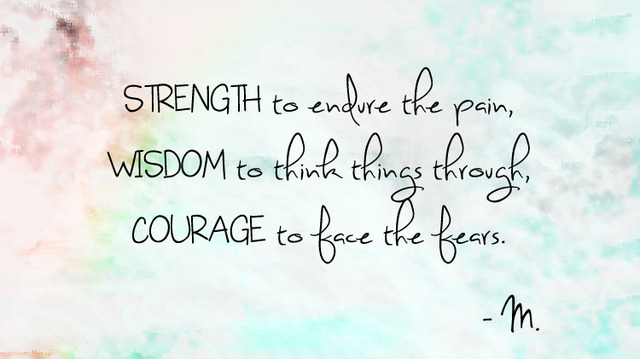 STRENGTH to endure the pain,
WISDOM to think things through,
COURAGE to face the fears.
- M.